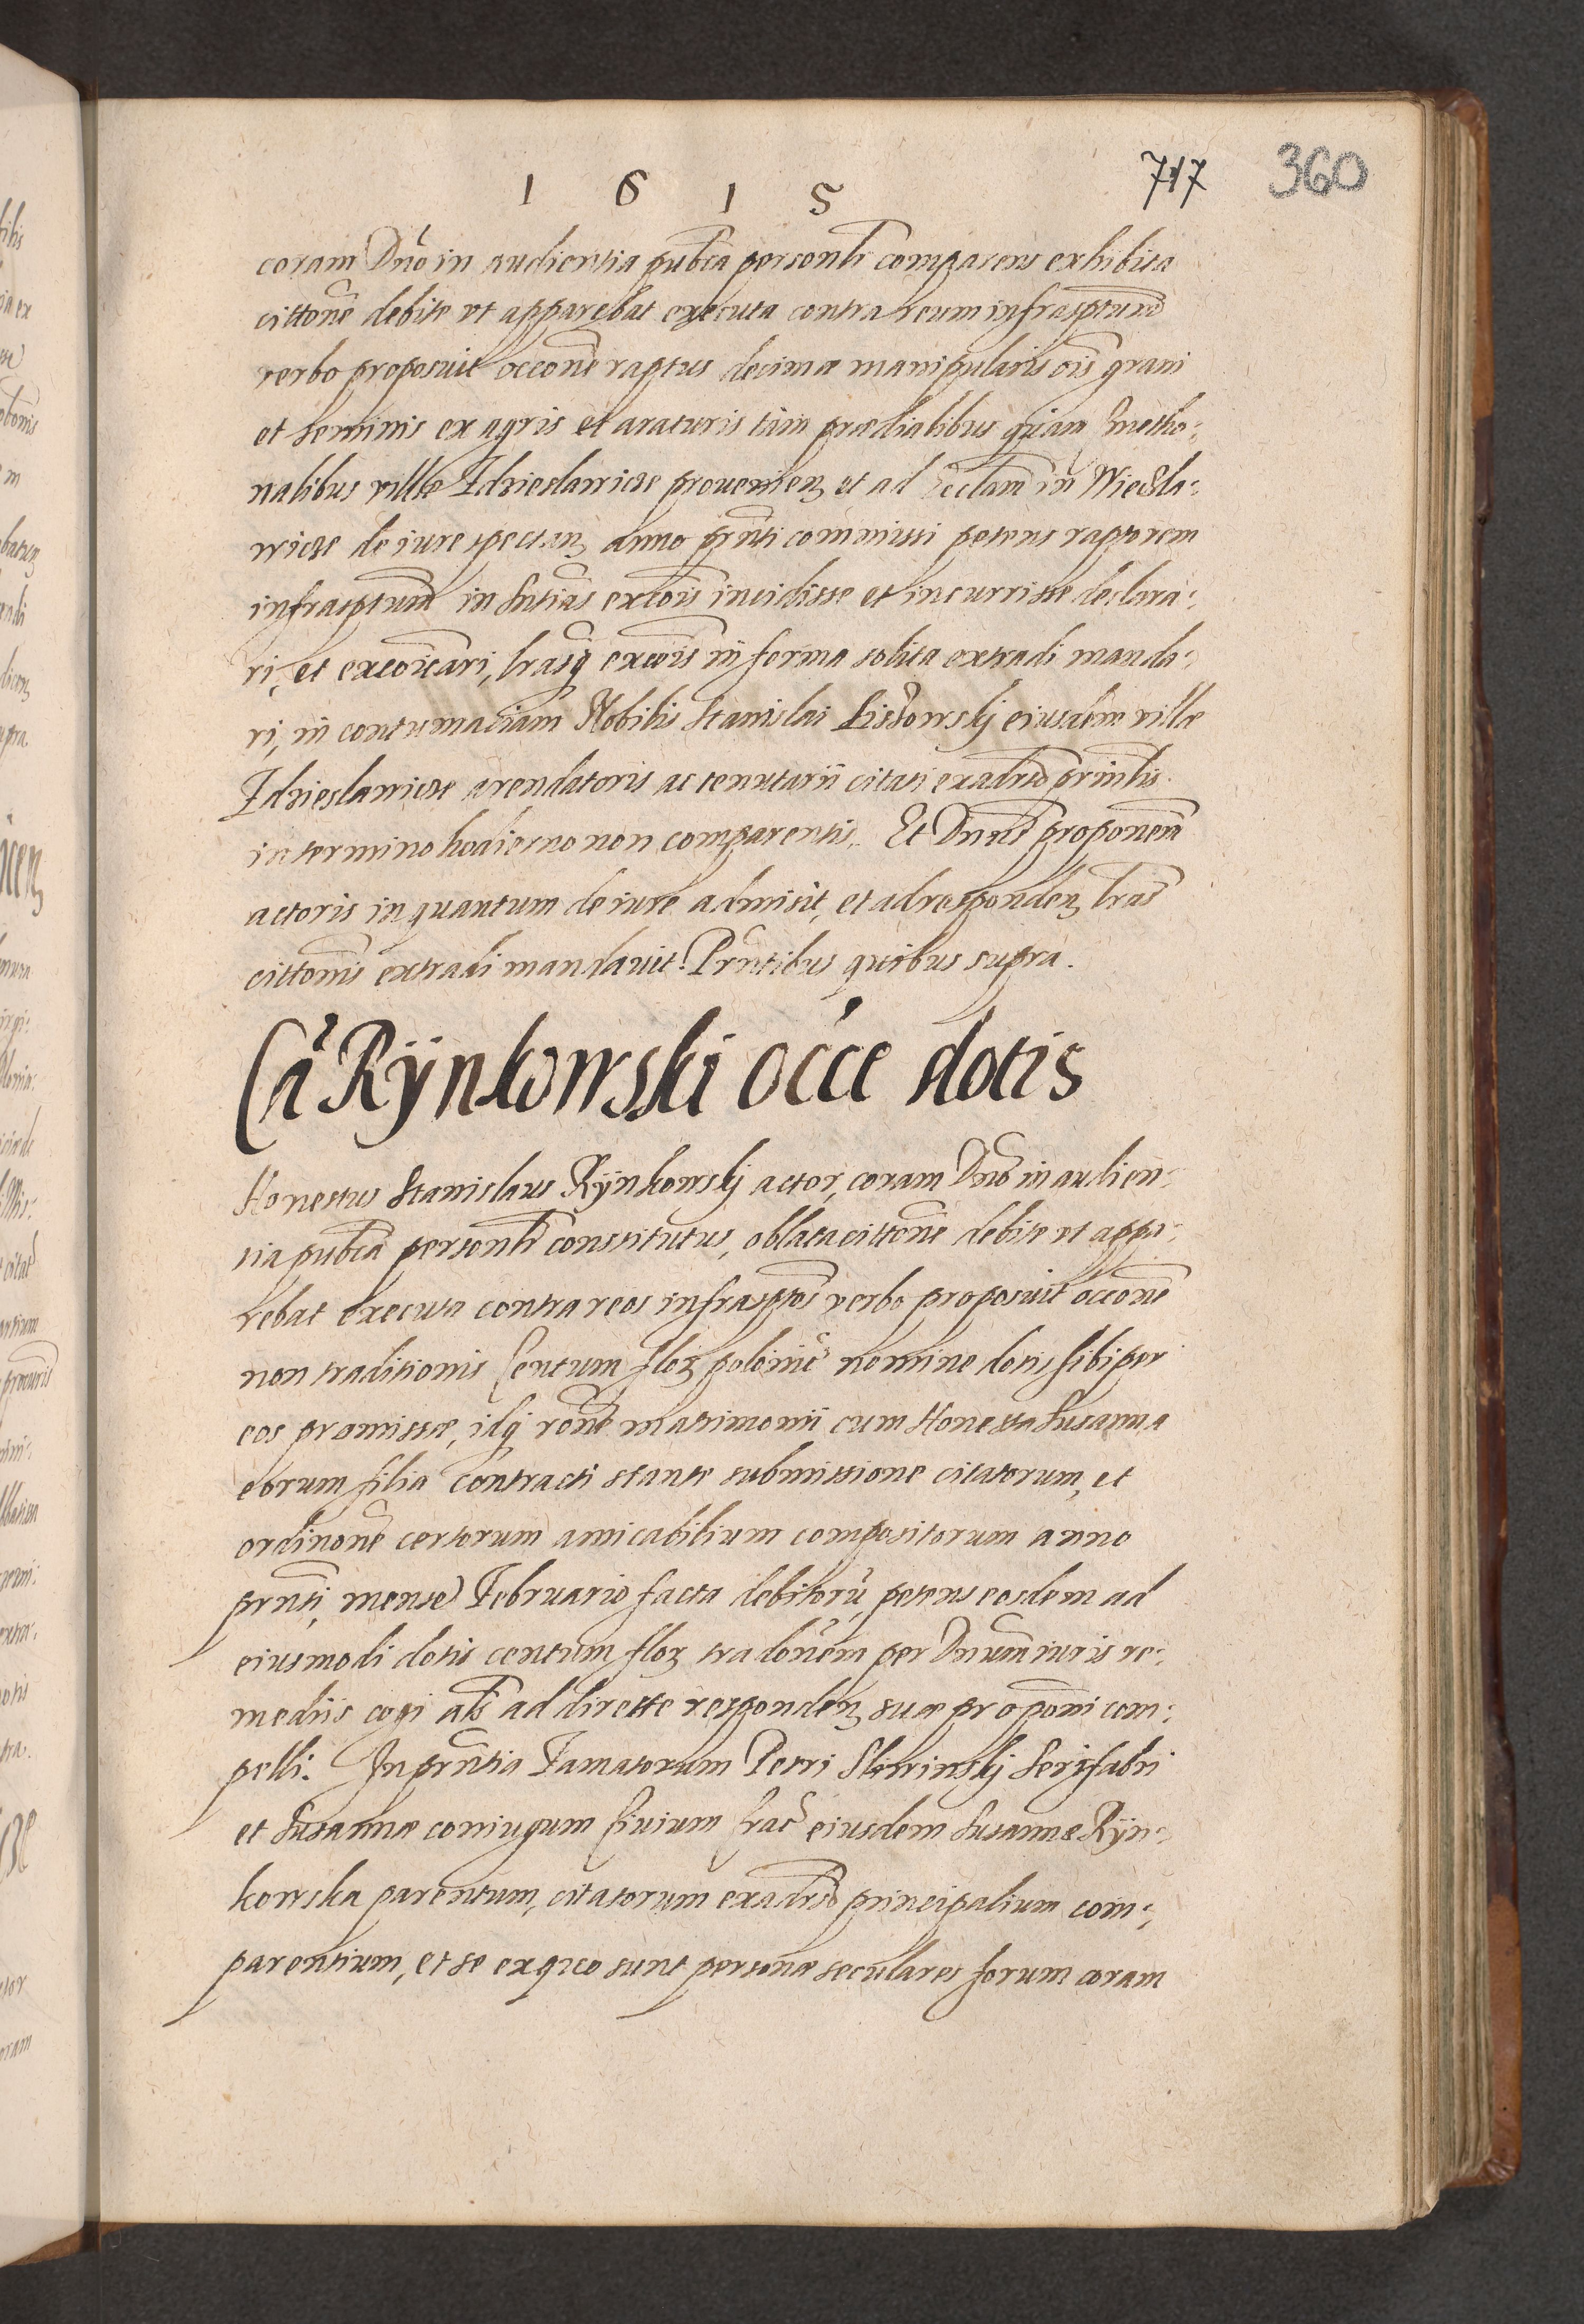 1 6 1 5
717 360
coram Dño in audientia pubca personlr comparens exhibita
cittone debite vt apparebat executa contra reum infrasptum
verbo proposuit occone raptus decimæ manipularis ois grani
et seminis ex agris et araturis tàm prædialibus quàm Cmetho-
nalibus villæ Idzieslawicze prouenien. et ad Ecclam in Wiesla-
wicze de iure spectan. anno prnti commissi petens raptorem
infrasptum in sntias excois incidisse et incurrisse declara-
ri, et excoicari, lrasq. excois in forma solita extradi manda-
ri, in contumaciam Nobilis Stanislai Lissowskj eiusdem villæ
Idzieslawicze arendatoris ac tenutarii citati ex adrso prinlis
in termino hodierno non comparentis. Et Dnus proponem
actoris in quantum de iure admisit, et ad responden. lras
cittonis extradi mandauit. Prntibus quibus supra.
Ca Rÿnkowski occe dotis
Honestus Stanislaus Rÿnkowskj actor, coram Dño in audien-
tia pubca personlr constitutus, oblata cittone debite vt appa-
rebat executa contra reos infrasptos verbo proposuit occone
non traditionis Centum flor. polonic nomine dotis sibi per
eos promissæ, idq. rone matrimonii cum Honesta Susanna
eorum filia contracti stante submissione citatorum, et
ordinone certorum amicabilium compositorum anno
prnti, mense Februario facta debitorũ, petens eosdem ad
eiusmodi dotis centum flor. tradonem per Dnum iuris re-
mediis cogi als ad directe responden. suæ proponi com-
pelli. In prntia Famatorum Petri Sliwinskj Serifabri
et Susannæ coniugum Ciuium Crac eiusdem Susannæ Rÿn-
kowska parentum, citatorum ex adrso principalium com-
parentium, et se ex quo sunt personæ seculares forum coram